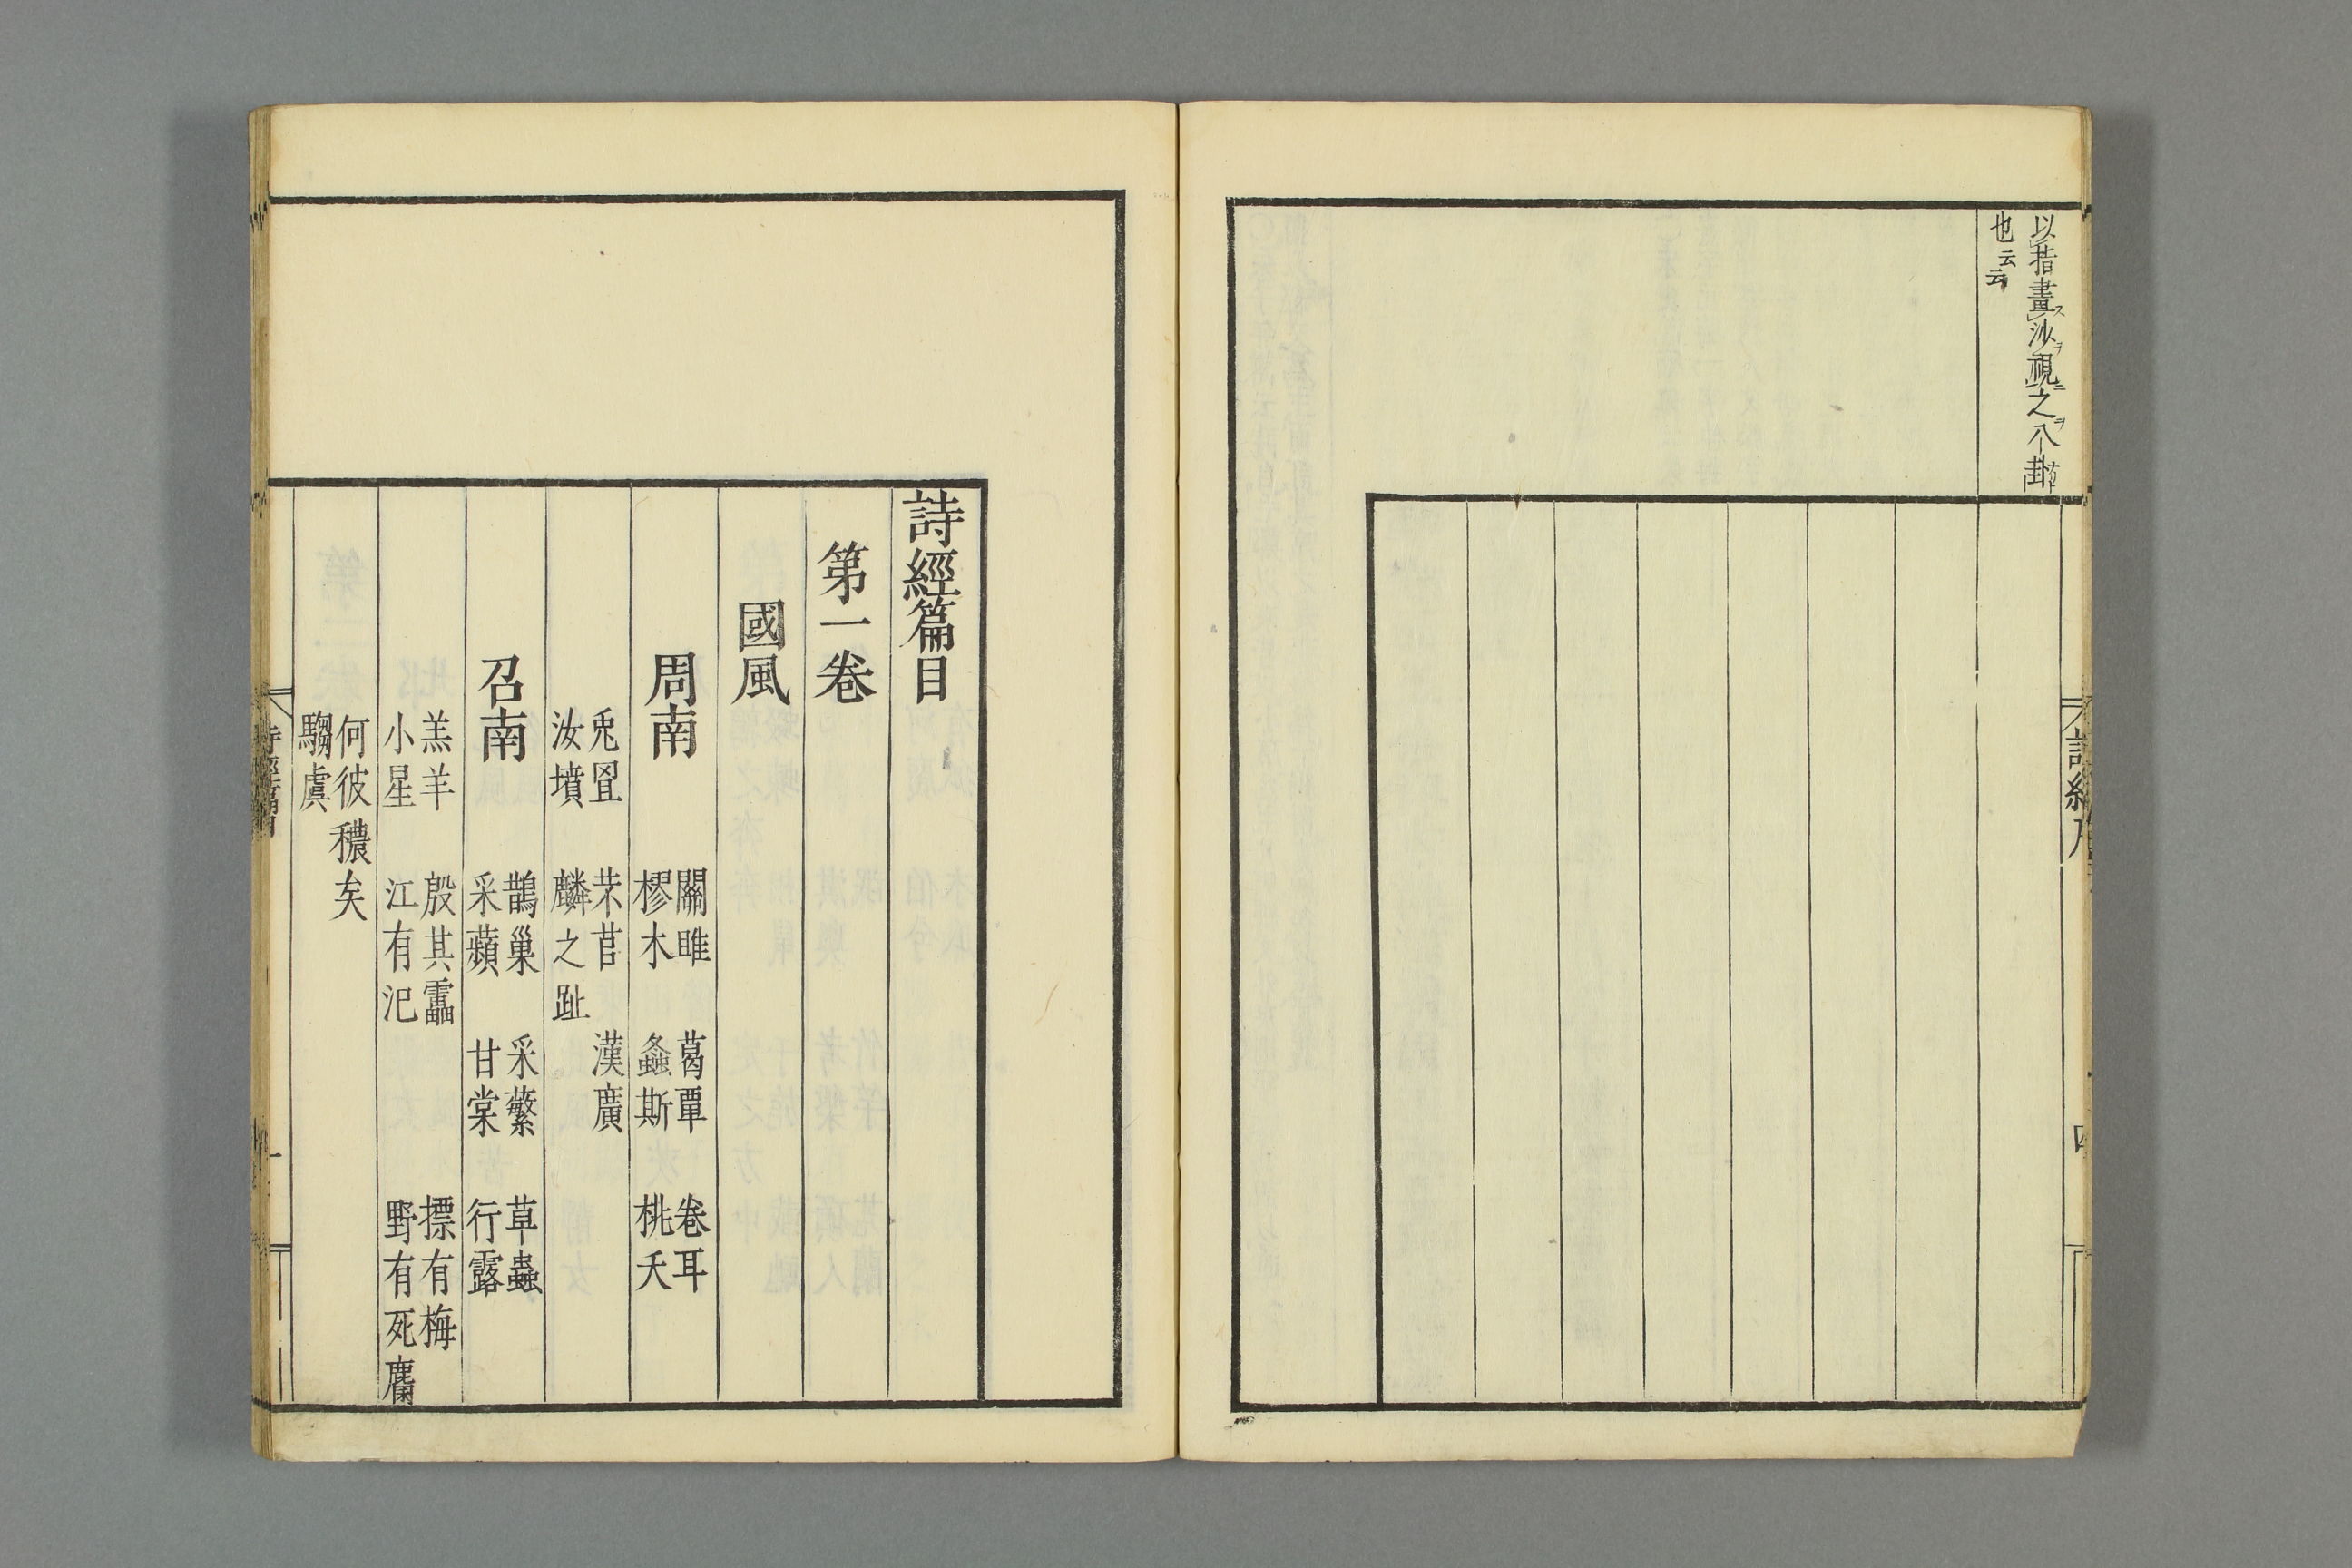 以指畫沙視之八卦
也云云
詩經篇目
第一卷
國風
周南
關雎 葛覃 卷耳
樛木 螽斯 桃夭
兎罝 芣苢 漢廣
汝墳 麟之趾
召南
鵲巢 采蘩 草蟲
采蘋 甘棠 行露
羔羊 殷其靁 摽有梅
小星 江有汜 野有死麕
何彼穠矣
騶虞